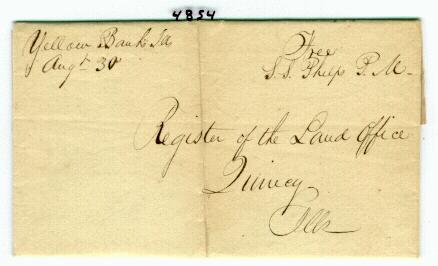 4854
Yellow Bank Ills
Augt 30
Free
S. S. Phelps P. M.
Register of the Land Office
Quincy
Ills